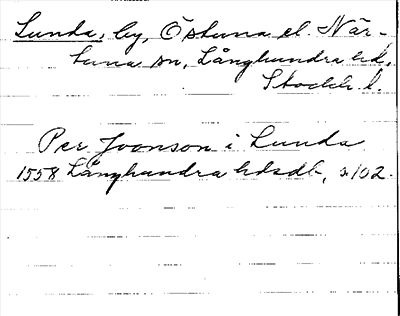 Lunda, by, Östuna el. När-
tuna sn, Långhundra hd,
Stockh. l.
Per Joonson i Lunda
1558 Långhundra hdsdb, s 102.